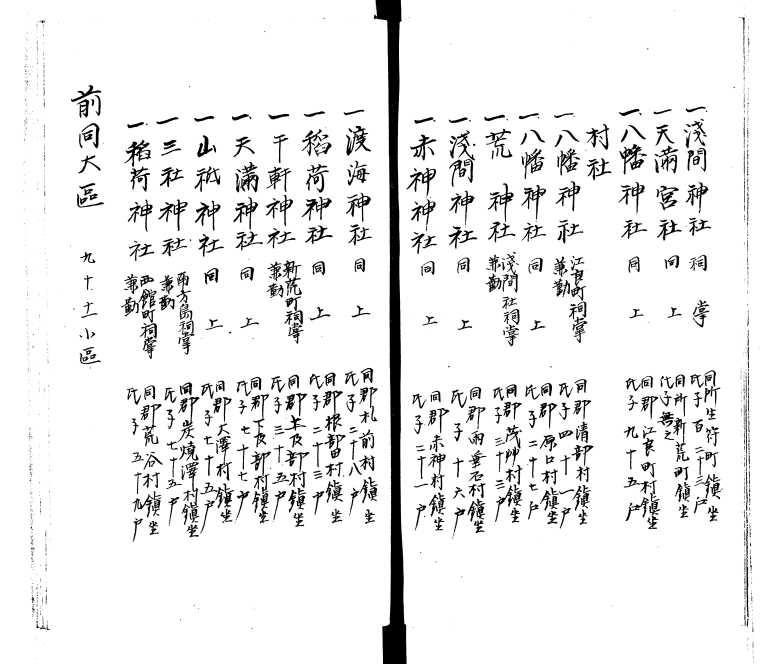 一淺間神社 祠掌 同所生符町鎮坐 氏子百二十三戸
一天滿宮社 同上 同所新荒町鎮坐 氏子無之
一八幡神社 同上 同郡江良町村鎮坐 氏子九十五戸
村社
一八幡神社 江良町祠掌兼勤 同郡清部村鎮坐 氏子四十一戸
一八幡神社 同上 同郡原口村鎮坐 氏子三十七戸
一荒神社 淺間社祠掌兼勤 同郡茂艸村鎮坐 氏子三十三戸
一淺間神社 同上 同郡雨垂石村鎮坐 氏子十六戸
一赤神神社 同上 同郡赤神村鎮坐 氏子二十一戸
一渡海神社 同上 同郡札前村鎮坐 氏子二十八戸
一稻荷神社 同上 同郡根部田村鎮坐 氏子二十三戸
一干軒神社 新荒町祠掌兼勤 同郡上及部村鎮坐 氏子三十五戸
一天滿神社 同上 同郡下及部村鎮坐 氏子七十七戸
一山祇神社 同上 同郡大澤村鎮坐 氏子七十五戸
一三社神社 唐方島祠掌兼勤 同郡炭燒澤村鎮坐 氏子七十五戸
一稻荷神社 西館町祠掌兼勤 同郡荒谷村鎮坐 氏子五十九戸
前同大區 九十十一小區